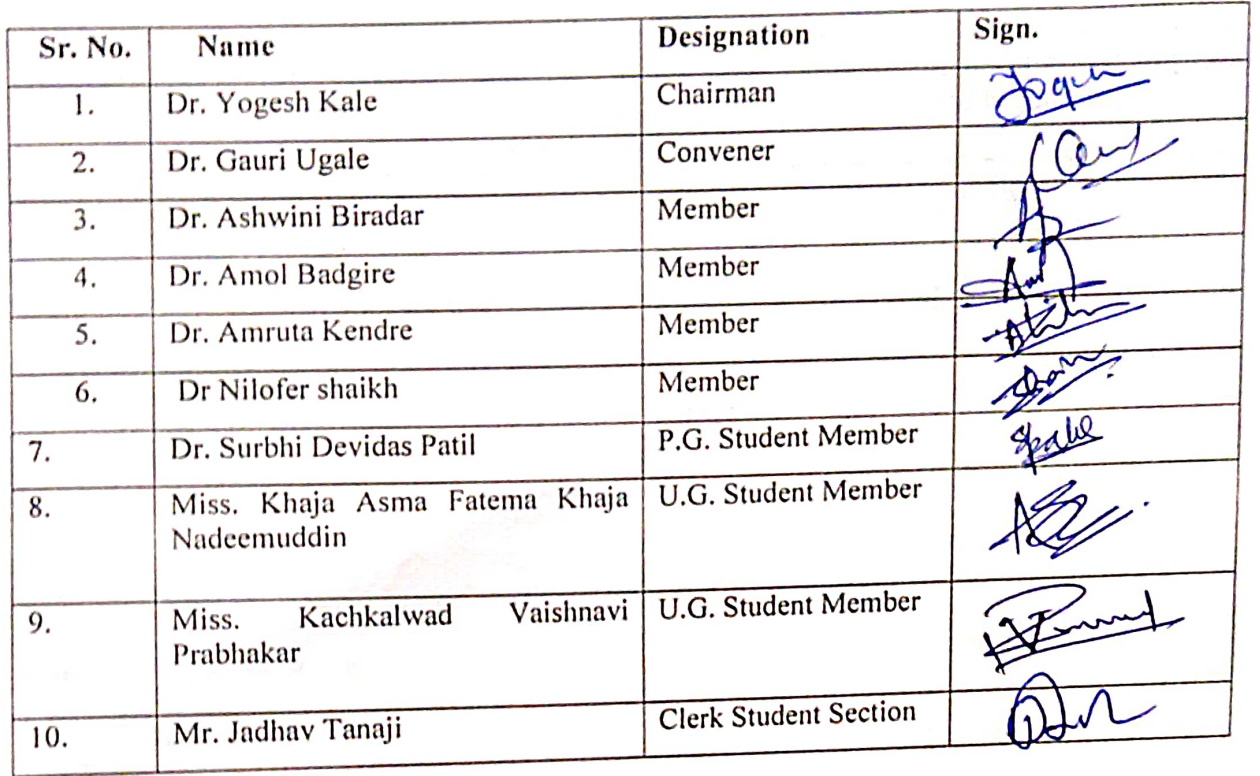 Sr. No. Name Designation Sign.
1. Dr. Yogesh Kale Chairman
2. Dr. Gauri Ugale Convener
3. Dr. Ashwini Biradar Member
4. Dr. Amol Badgire Member
5. Dr. Amruta Kendre Member
6. Dr Nilofer shaikh Member
7. Dr. Surbhi Devidas Patil P.G. Student Member
8. Miss. Khaja Asma Fatema Khaja U.G. Student Member
Nadeemuddin
9. Miss. Kachkalwad Vaishnavi U.G. Student Member
Prabhakar
10. Mr. Jadhav Tanaji Clerk Student Section